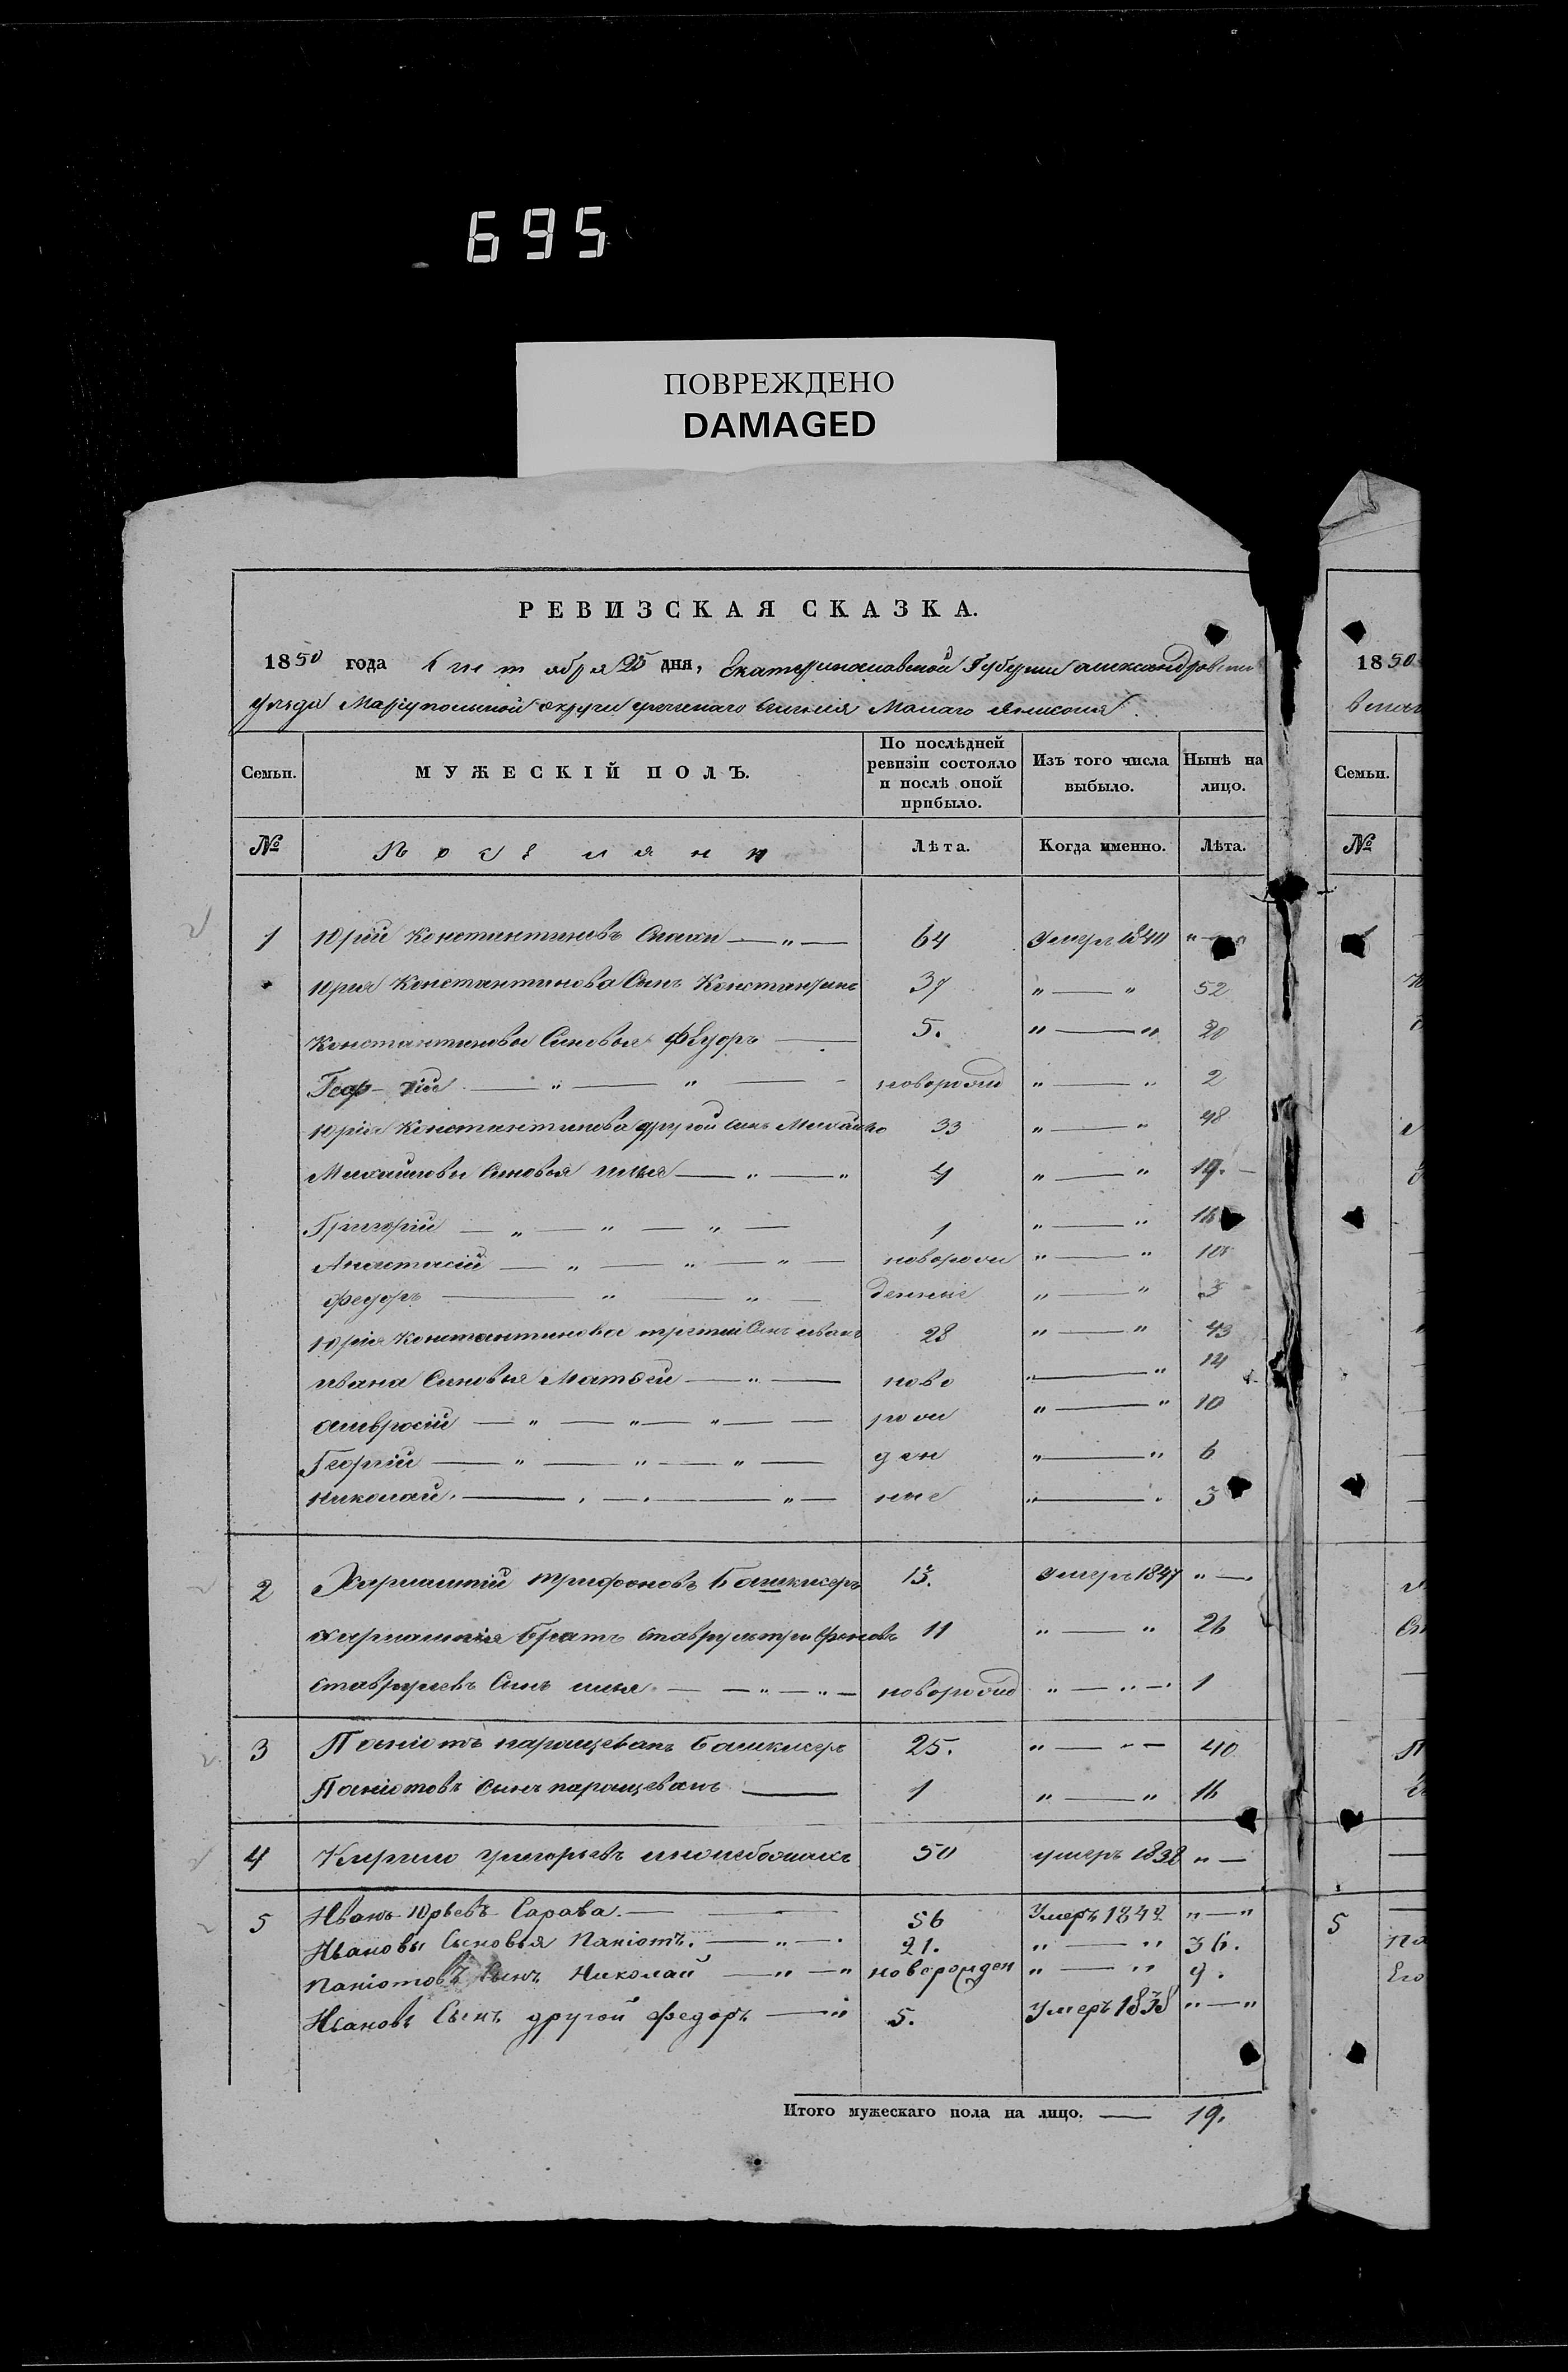 695
ПОВРЕЖДЕНО
DAMAGED
РЕВИЗСКАЯ СКАЗКА.
1850 года дня, Екатеринославской Губерніи
уезда Маріупольской округи греческаго
1850
Семьи. МУЖЕСКІЙ ПОЛЪ. По послѣдней ревизіи состояло и послѣ оной прибыло. Изъ того числа выбыло. Нынѣ на лицо. Семьи.
№ Поселяни Лѣта. Когда именно. Лѣта. №
1 Юрій Константиновъ 64 Умеръ „ — „
Юрія Константинова Сынъ Константинъ 37 „ — „ 52
Константиновы Синовья Федоръ — 5. „ — „ 20
— „ — „ — новорожд „ — „ 2
Юрія Константинова другой Синъ Михайло 33 „ — „ 48
Михайловы Синовья илья — „ — „ 4 „ — „ 19.
Григорій — „ — „ — „ — 1 „ — „ 16
Анастасій — „ — „ — „ — новорож „ — „ 10
Федоръ — „ — „ — денные „ — „ 3
Юрія Константинова третій Синъ иванъ 28 „ — „ 43
ивана Синовья Матвей — „ — ново „ — „ 14
амвросій — „ — „ — „ — рож „ — „ 10
Георгій — „ — „ — „ — ден „ — „ 6
николай. — „ — ные „ — „ 3
2 Харлампій трифоновъ 13. Умеръ 1847 „ —
харлампія братъ трифоновъ 11 „ — „ 26
Синъ илья — „ — „ — новорожд „ — „ 1
3 25. „ — „ 40
Паніотовъ Сынъ — 1 „ — „ 16
4 Кирило григорьевъ 50 умеръ 1838 „ —
5 Иванъ Юрьевъ Сарава. — 56 Умеръ 1842 „ — „ 5
Ивановы Сыновья Паніотъ. — „ — 21. „ — „ 36.
Паніотовъ Сынъ Николай — „ — „ новорожден „ — „ 9. Его
Ивановъ Сынъ другой Федоръ — „ 5. Умеръ 1838 „ — „
Итого мужескаго пола на лицо. — 19.